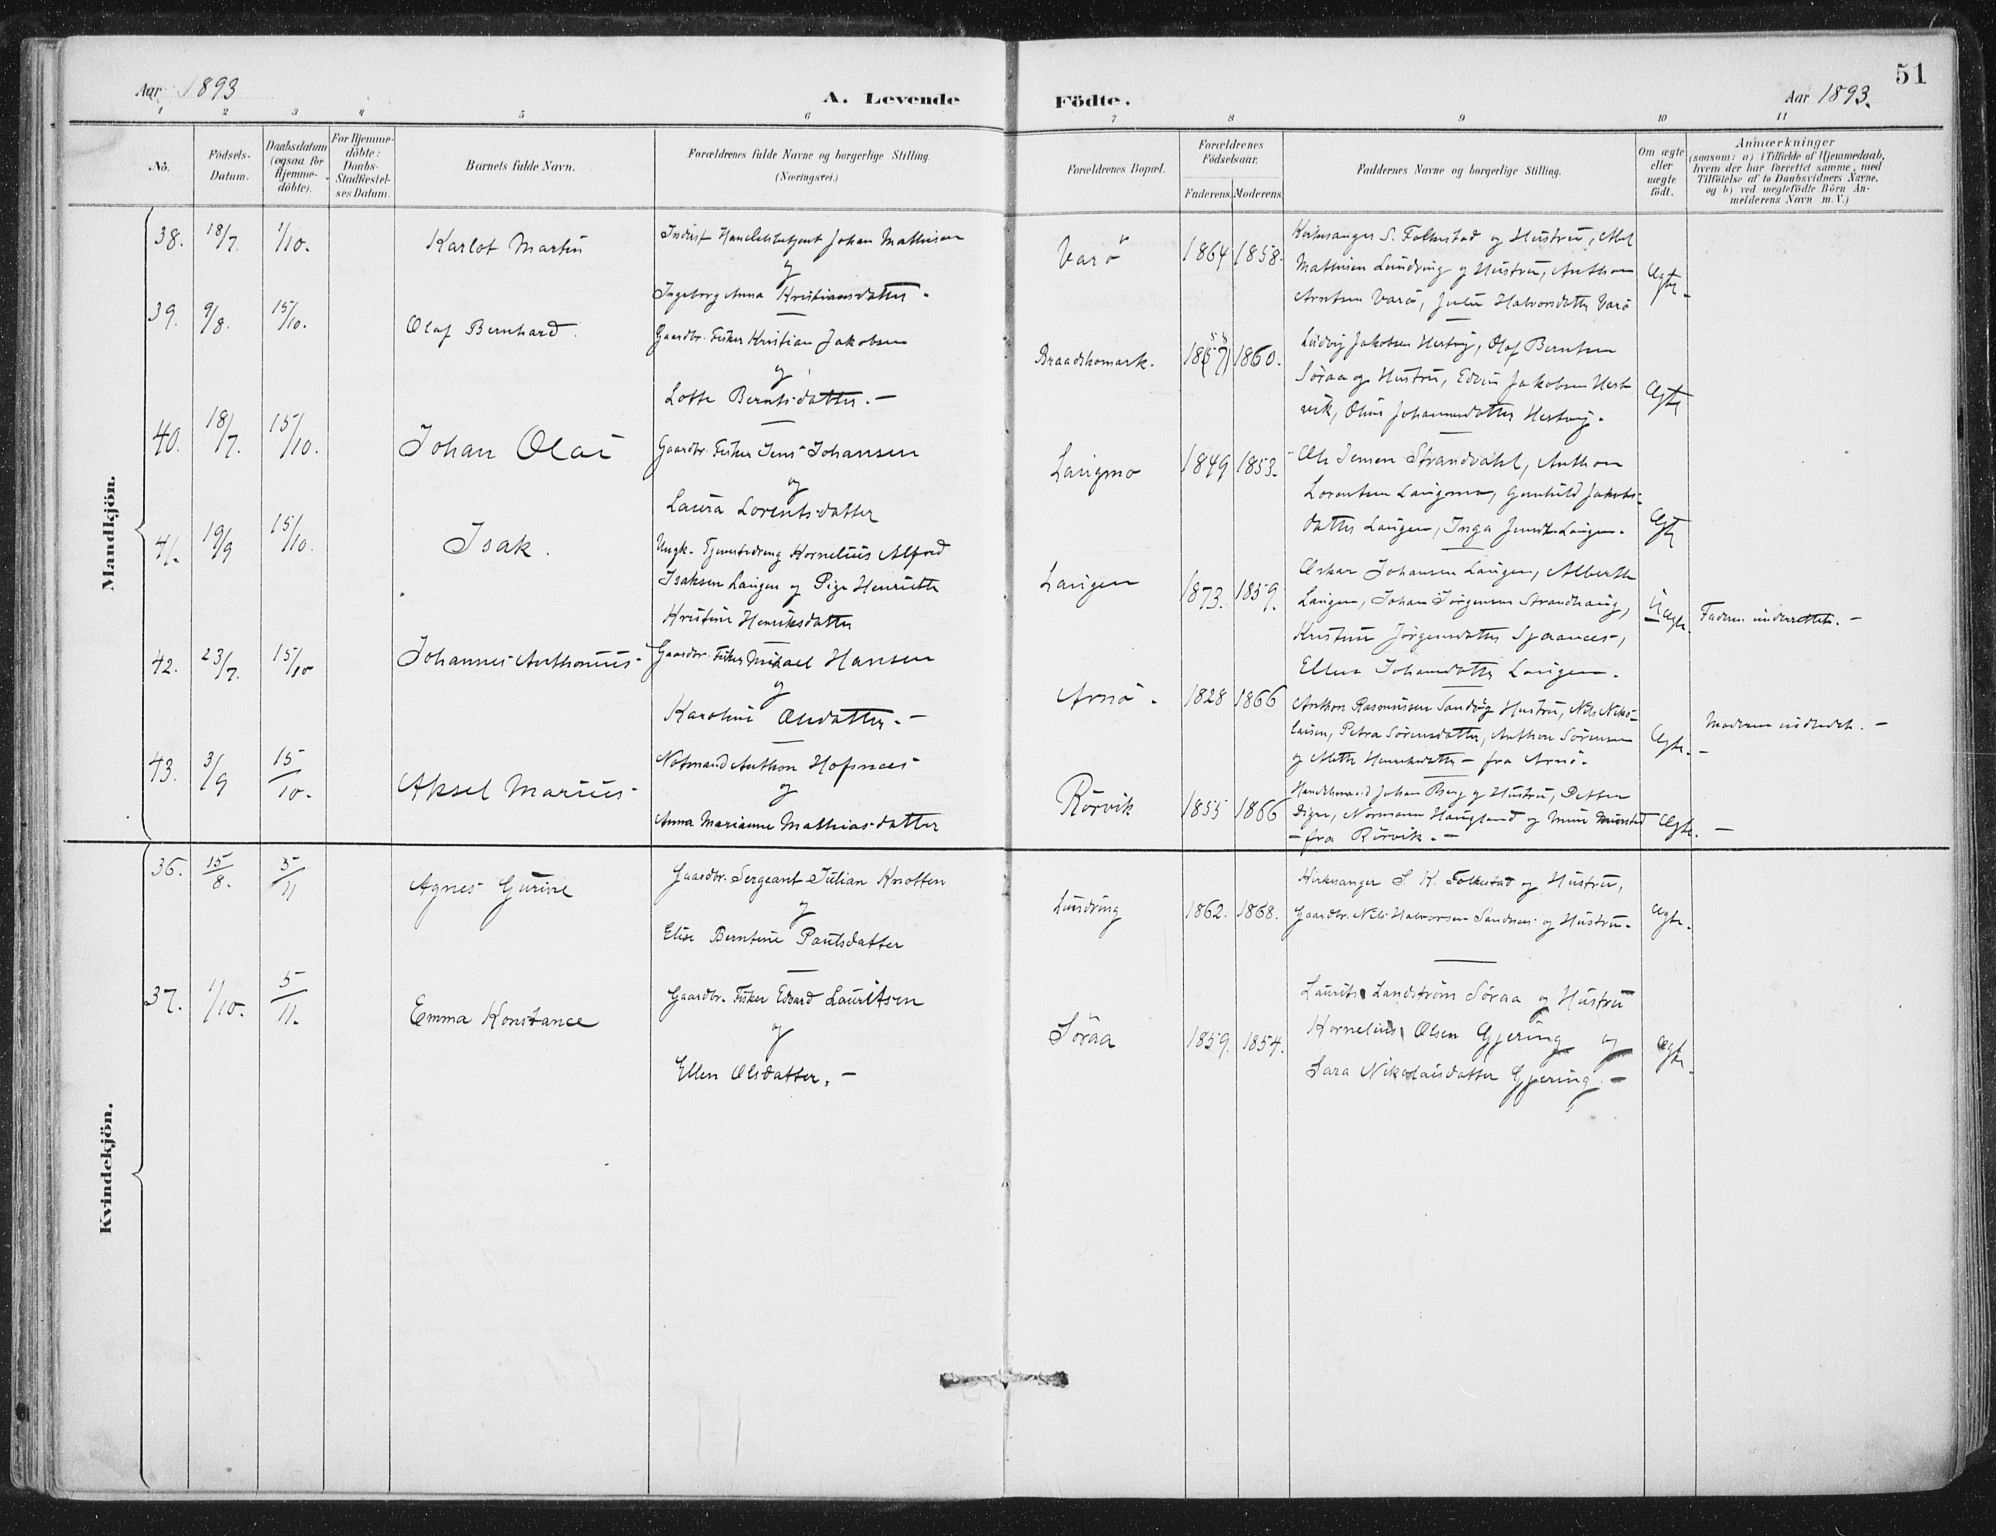 51
Aar 1893
A. Levende Födte.
Aar 1893.
1 2 3 4 5 6 7 8 9 10 11
No.
Födsels-Datum.
Daabsdatum (ogsaa for Hjemme-döbte).
For Hjemme-döbte: Daabs-Stadfæstel-ses Datum.
Barnets fulde Navn.
Forældrenes fulde Navne og borgerlige Stilling.
(Næringsvei.)
Forældrenes Bopæl.
Forældrenes Födselsaar.
Faderens Moderens
Faddernes Navne og borgerlige Stilling.
Om ægte eller uægte födt.
Anmærkninger
(saasom: a) i Tilfælde af Hjemmedaab,
hvem der har forrettet samme, med
Tilföielse af to Daabsvidners Navne,
og b) ved uegtefödte Börn An-
melderens Navn m. V.)
Mandkjön.
38. 18/7 1/10. Karlot Martin
Johan Mathisen
og
Ingeborg Anna Kristiansdatter.
Varö 1864 1858.
Kirkesanger S. Folkestad og Hustru,
Mathisen Lundring og Hustru, Anthon
Arntsen Varö, Halvorsdatter Varö
Ægte.
39. 9/8. 15/10. Olaf Bernhard.
Gaardbr. Fisker Kristian Jakobsen
og
Lotte Berntsdatter.
Braadskomark. 18(57) 1860.
Ludvig Jakobsen Hertvig, Olaf Berntsen
Söraa og Hustru, Edvin Jakobsen Hert-
vik, Johannesdatter Hertvig.
Ægte
40. 18/7. 15/10. Johan Olai
Gaardbr. Fisker Jens Johansen
og
Laura Lorentsdatter
Langmo 1849 1853.
Ole Jensen Strandvahl, Anthon
Lorentsen Langmo, Gunhild Jakobs-
datter Langen, Inga Langen.
Ægte
41. 19/9 15/10. Isak.
Ungk. Tjenestedreng Kornelius Alfred
Isaksen Langen og Pige Henriette
Kristine Henriksdatter
Langen 1873. 1859.
Oskar Johansen Langen, Alberth
Langen, Johan Jörgensen Strandhaug,
Kristine Jörgensdatter
Ellen Johansdatter Langen.
Uægte.
Faderen underrettet.
42. 23/7. 15/10 Johannes Anthonius
Gaardbr. Fisker Mikael Hansen
og
Karoline Olsdatter.
Arnö. 1828 1866
Anthon Rasmussen Sandvig Hustru, Nils Niko-
laisen, Petra Sörensdatter, Anthon Sörensen
og Mette fra Arnö.
Ægte.
Moderen indledet.
43. 3/9 15/10. Aksel Marius
Notmand Anthon Hofnæs
og
Anna Marianne Mathiasdatter
Rörvik 1855 1866
Handelsmand Johan Berg og Hustru, Petter
Digre, Normann Haugland og
fra Rörvik.
Ægte.
Kvindekjön.
36. 15/8. 5/11 Agnes Gurine
Gaardbr. Sergeant Julian Knotten
og
Elise Berntine Paulsdatter
Lundring 1862. 1868.
Kirkesanger S. K. Folkestad og Hustru,
Gaardbr. Nils Halvorsen Sandnes og Hustru.
Ægte.
37. 1/10. 5/11. Emma Konstance
Gaardbr. Fisker Edvard Lauritsen
og
Ellen Olsdatter.
Söraa 1859. 1854.
Laurits Landström Söraa og Hustru
Kornelius Olsen Gjering og
Sara Nikolaisdatter Gjering.
Ægte.